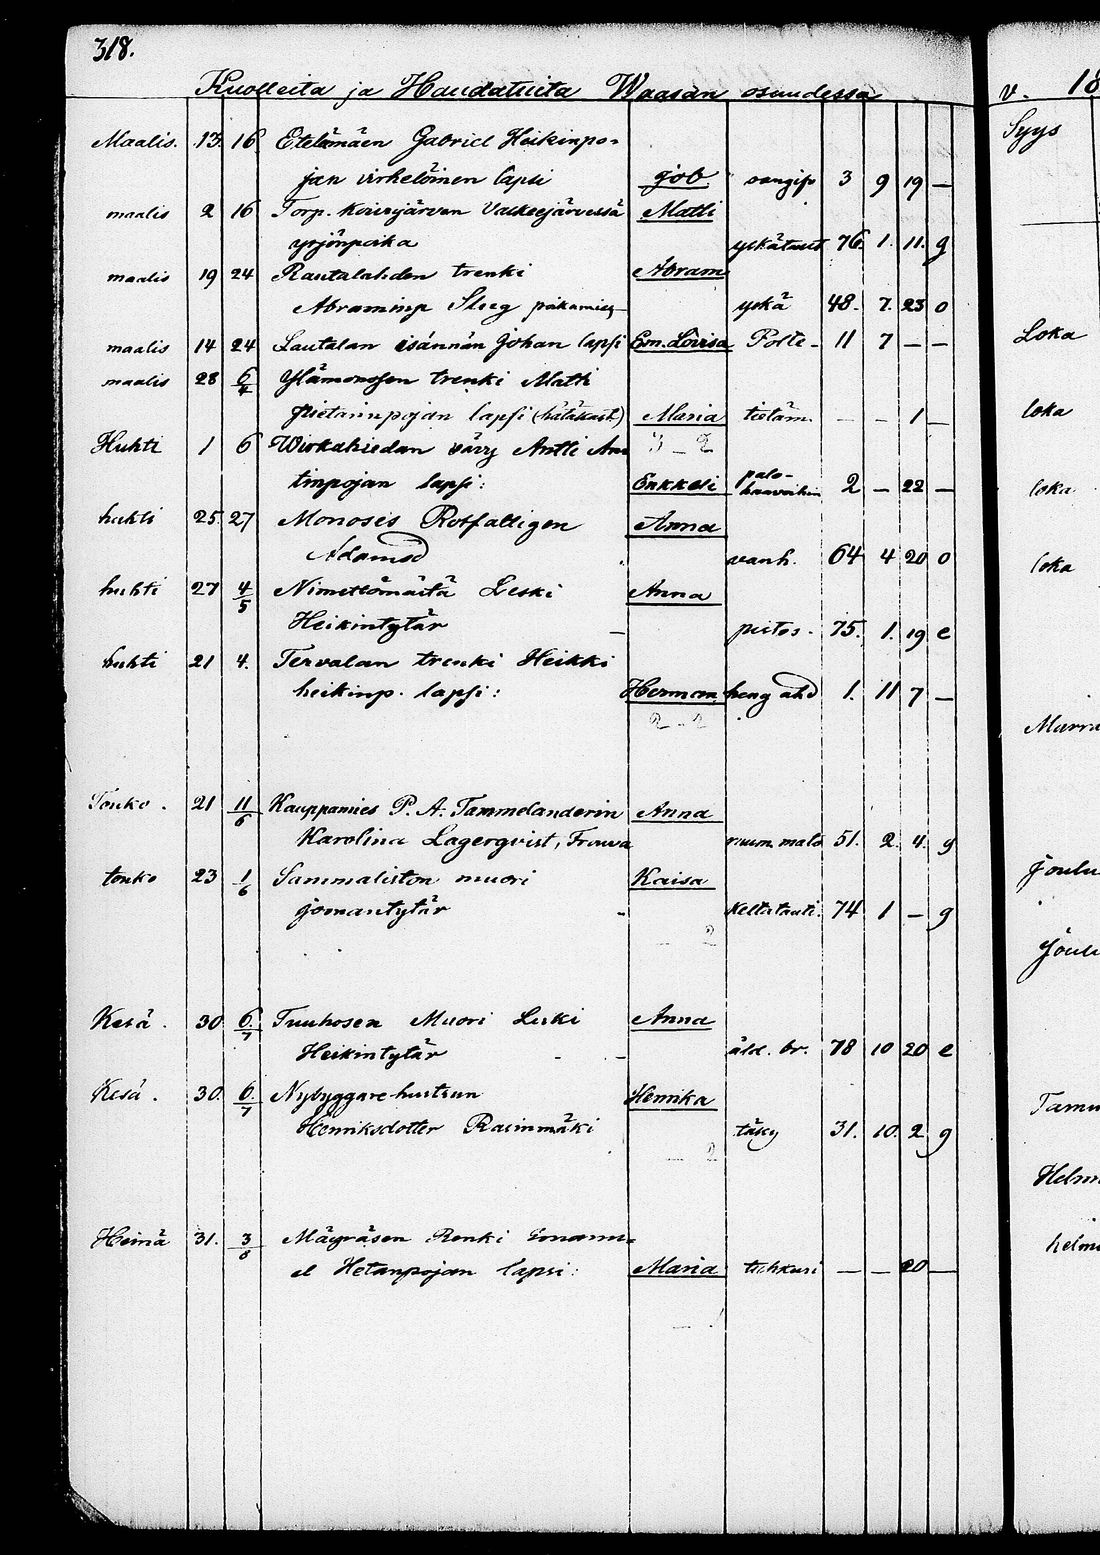 318.
Kuolleita ja Haudatuita Waasan osuudessa
Maalis. 13. 16 Etelämäen Gabriel Heikinpo-
jan virkelöinen lapsi Job. 3 9 19 —
maalis 2 16 Torp. Valkeejärvessä Matti
yrjönpoika yskätaut 76. 1. 11. g
maalis 19 24 Rautalahden trenki Abram
Abraminp Sleeg yskä 48. 7. 23 0
maalis 14 24 Lautalan isännän Johan lapsi Em. Lovisa Polte - 11 7 — —
maalis 28 6/4 Ylämonosen trenki Matti
pietarinpojan lapsi (hätäkast.) Maria tietäm. — — 1 —
Huhti 1 6 Wirkahiedan Antti An 3 - 2
timpojan lapsi: Enkkeli palo-
haavoihin 2 — 22 —
huhti 25. 27 Monosis Rotfattigen Anna
Adamsd vanh. 64 4 20 0
huhti 27 4/5 Nimettömästä Leski Anna
Heikintytär — pistos. 75. 1. 19 e
huhti 21 4. Tervalan trenki Heikki
heikinp. lapsi: Herman heng ahd 1. 11 7 —
2 - 2
Touko. 21 11/6 Kauppamies P. A. Tammelanderin Anna
Karolina Lagerqvist, Frouva 51. 2. 4. g
touko 23 1/6 Sammaliston muori Kaisa
Jomantytär - Keltatauti. 74 1 — g
— 2
Kesä. 30 6/7 Tuuhosen Muori Leski Anna
Heikintytär - - åld. br. 78 10 20 e
Kesä. 30. 6/7 Nybyggare hustrun Henrika
Henriksdotter Rasinmäki 31. 10. 2 g
— 2
Heinä 31. 3/8 Mäyräsen Renki Emanu-
el Hetanpojan lapsi: Maria tuhkuri — — 20 —
v. 18
Syys
Loka
loka
loka
loka
Marra
Joulu
Joulu
Tamm
Helm
helmi